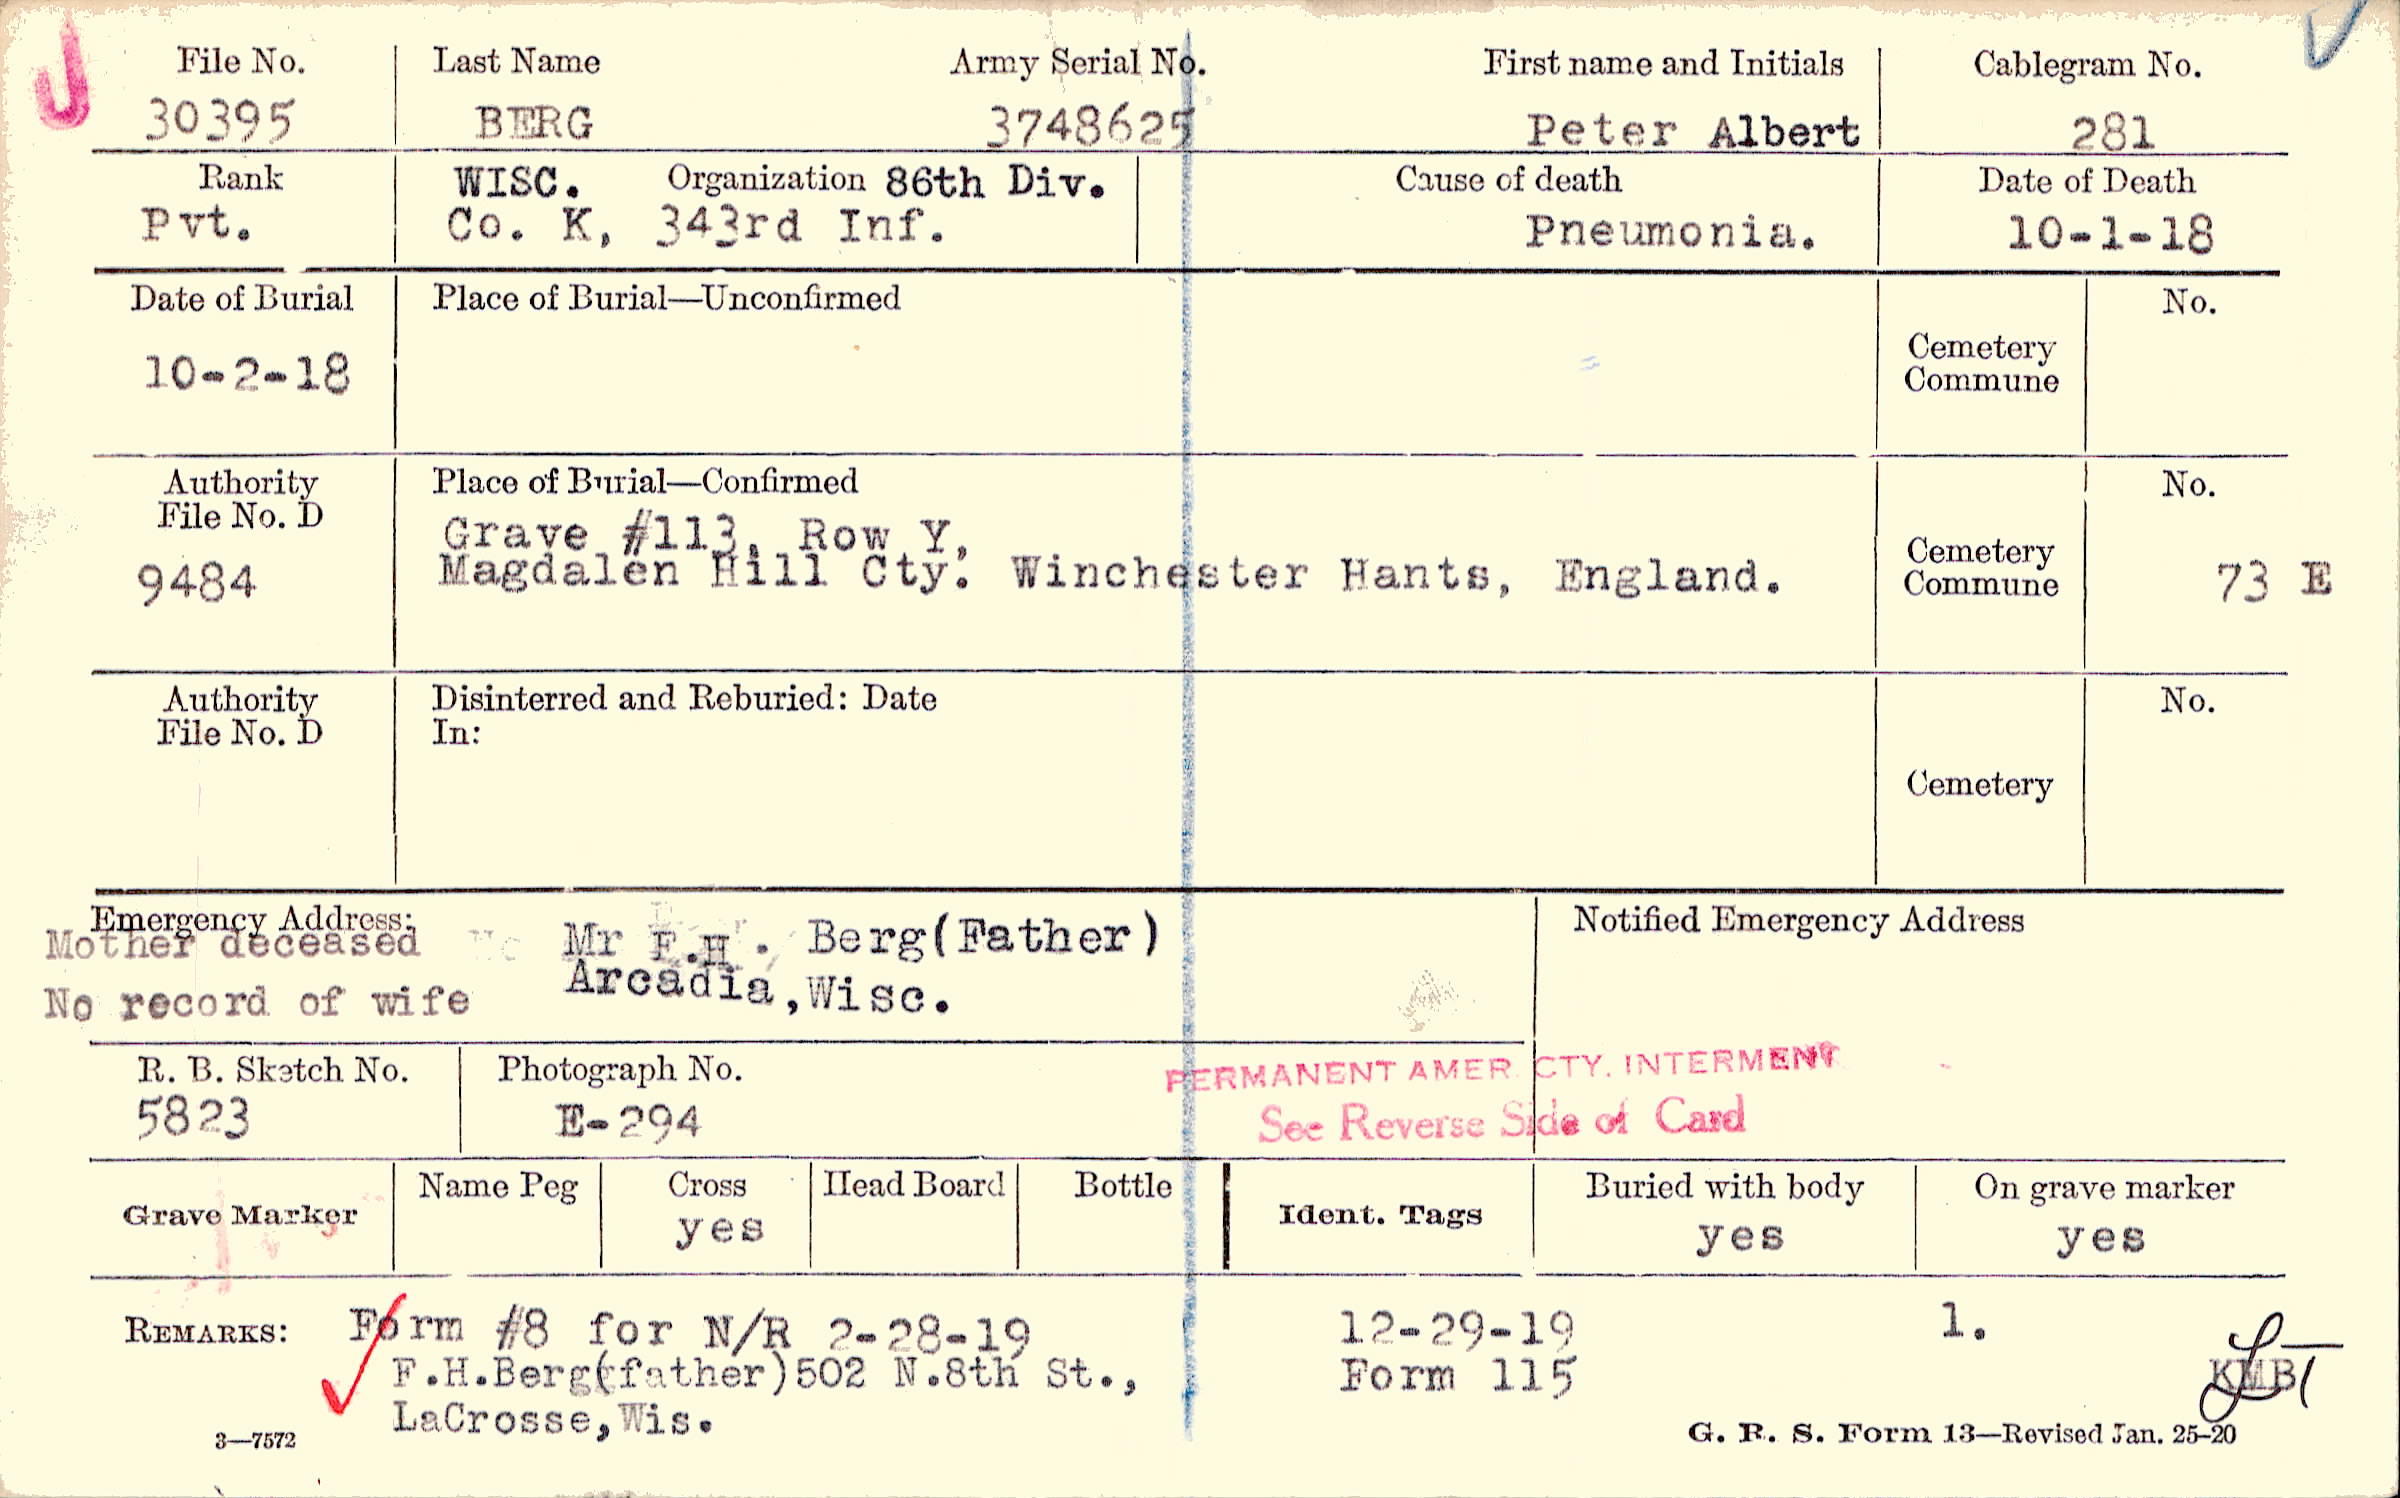 File No. Last Name Army Serial No. First name and Initials Cablegram No.
30395 BERG 3748625 Peter Albert 281
Rank WISC. Organization 86th Div. Cause of death Date of Death
Pvt. Co. K, 343rd Inf. Pneumonia. 10-1-18
Date of Burial Place of Burial—Unconfirmed No.
10-2-18 Cemetery
Commune
Authority Place of Burial—Confirmed No.
File No. D Grave #113, Row Y,
9484 Magdalen Hill Cty. Winchester Hants, England. Cemetery
Commune 73 E
Authority Disinterred and Reburied: Date No.
File No. D In:
Cemetery
Emergency Address: Notified Emergency Address
Mother deceased Mr F.H. Berg(Father)
No record of wife Arcadia,Wisc.
R. B. Sketch No. Photograph No. PERMANENT AMER. CTY. INTERMENT
5823 E-294 See Reverse Side of Card
Grave Marker Name Peg Cross Head Board Bottle Ident. Tags Buried with body On grave marker
yes yes yes
REMARKS: Form #8 for N/R 2-28-19 12-29-19 1.
F.H.Berg(father)502 N.8th St., Form 115 KMB
LaCrosse,Wis.
3—7572 G. R. S. Form 13—Revised Jan. 25-20